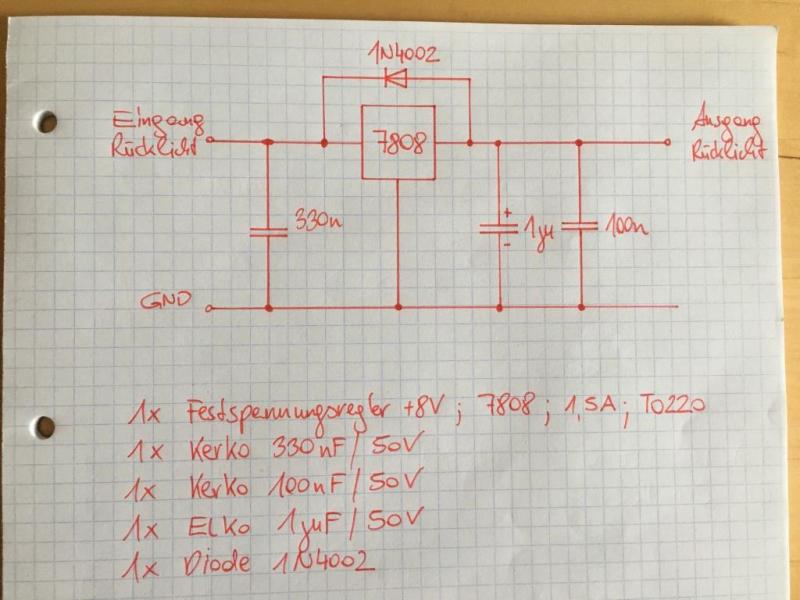 1N4002
Eingang
Rücklicht
7808
Ausgang
Rücklicht
330n
+
-
1µ
100n
GND
1x Festspannungsregler +8V ; 7808 ; 1,5A ; TO220
1x Kerko 330nF / 50V
1x Kerko 100nF / 50V
1x ELKo 1µF / 50V
1x Diode 1N4002